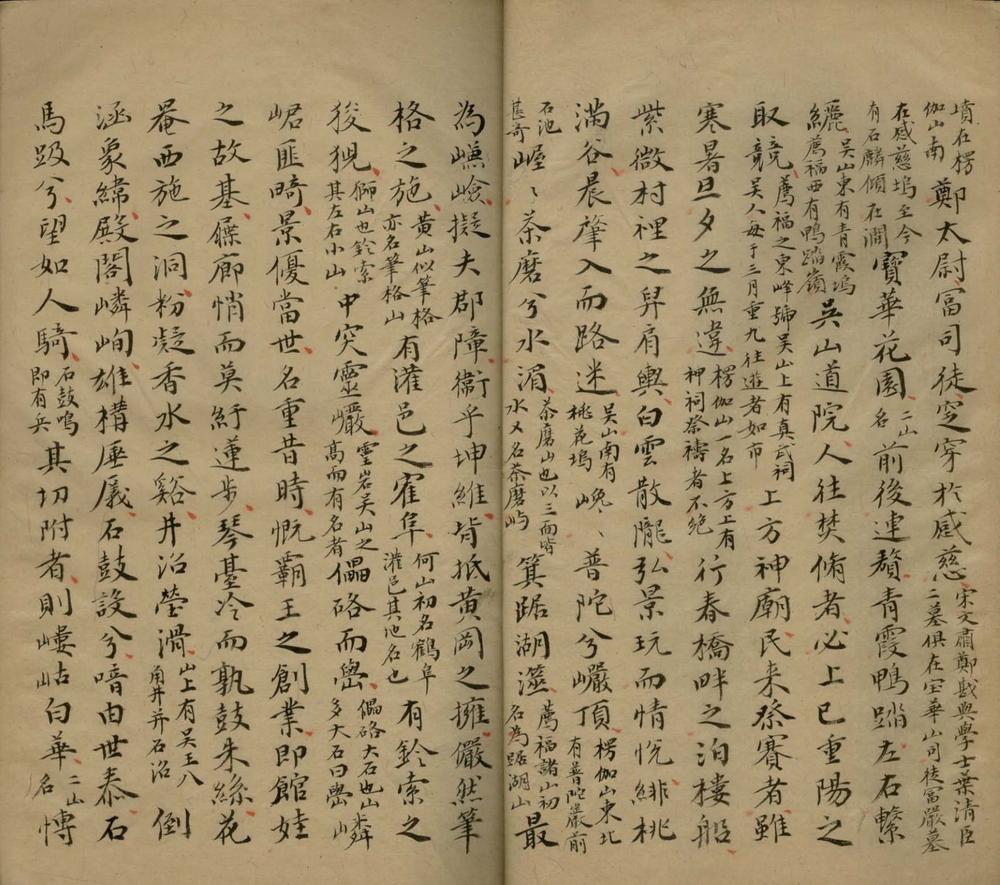 墳在楞伽山南鄭太尉富司徒窆穿於感慈宋文肅鄭戩與學士葉清臣二墓俱在宝華山司徒富嚴墓
在感慈塢至今有石麟傾在澗寶華花園二山名前後連贅青霞鴨踏左右縈
纚吳山東有青霞塢薦福西有鴨踏嶺吳山道院人往焚脩者必上巳重陽之
取竞薦福之東峰號吳山上有真武祠竟吴人每于三月重九往遊者如市上方神廟民来祭賽者雖
寒暑旦夕之無違楞伽山一名上方上有神祠祭禱者不绝行春橋畔之泊樓船
紫微村裡之舁肩輿白雲散隴弘景玩而情悦緋桃
满谷晨肇入而路迷吴山南有桃花塢巉、普陀兮巖頂楞伽山東北有普陀巖前
石池甚奇崕〻茶磨兮水湄茶磨山也以三面皆水又名茶磨屿箕踞湖澨薦福諸山初名為踞湖山最
為嶮嶮擬夫郡障衞乎坤維背抵黄岡之擁儼然筆
格之施黄山似筆格亦名筆格山有灌邑之寉阜何山初名鶴阜灌邑其地名也有鈴索之
狻猊獅山也鈴索其左右小山中突靈巖靈岩吴山之高而有名者儡硌而嶨儡硌大石也山多大石曰嶨嶙
峮匪畸景優當世名重昔時慨霸王之創業即館娃
之故基屧廊悄而莫紆蓮步琴臺冷而孰鼓朱絲花
菴西施之洞粉凝香水之谿井沼瑩滑山上有吴王八角井并石沼倒
涵象緯殿閣嶙峋雄構屖嶬石鼓設兮喑由世泰石
馬跂兮望如人騎石鼓鳴即有兵其切附者則嶁岵白華二山名愽